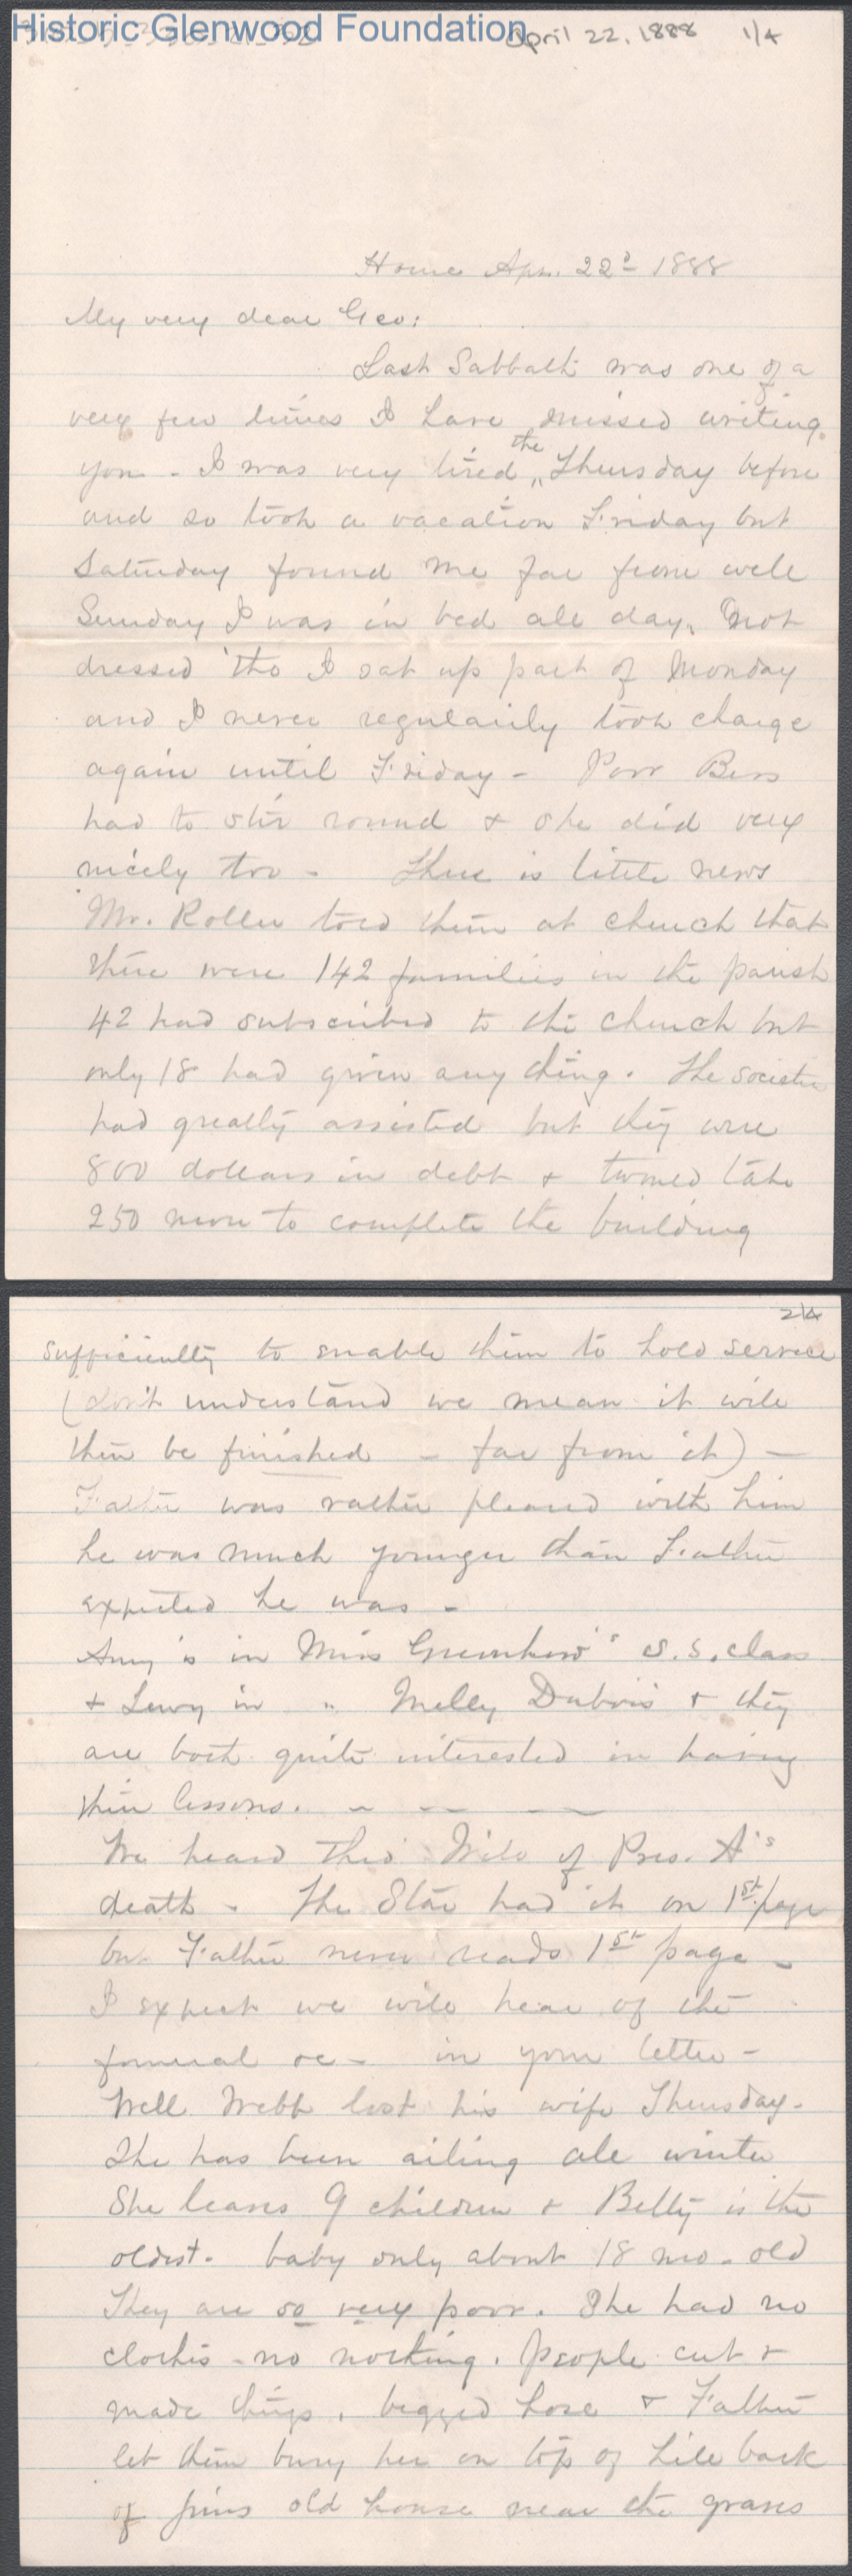 Historic Glenwood Foundation
April 22, 1888 1/4
Home Apr. 22d 1888
My very dear Geo:
Last Sabbath was one of a
very few times I have missed writing
you - I was very tired the Thursday before
and so took a vacation Friday but
Saturday found me far from well
Sunday I was in bed all day, not
dressed 'tho I sat up part of Monday
and I never regularily took charge
again until Friday - Poor Bess
had to stir round & she did very
nicely too - There is little news
Mr. Roller told them at church that
there were 142 families in the parish
42 had subscribed to the church but
only 18 had given any thing. The societies
had greatly assisted but they were
800 dollars in debt & twould take
250 more to complete the building
2/4
sufficiently to enable them to hold service
(don't understand we mean it will
then be finished - far from it) -
Father was rather pleased with him
he was much younger than Father
expected he was -
Amy is in Miss Greenhow's S.S. class
& Lewy in " Melly Dubois & they
are both quite interested in having
their lessons. - - -
We heard thro' Milo of Pres. A's
death - The Star had it on 1st page
but Father never reads 1st page -
I expect we will hear of the
funeral &c - in your letter -
Well Webb lost his wife Thursday.
She has been ailing all winter
She leaves 9 children & Betty is the
oldest. baby only about 18 mo. old
They are so very poor. She had no
clothes - no nothing. People cut &
made things, begged hose & Father
let them bury her on top of hill back
of Jims old house near the graves